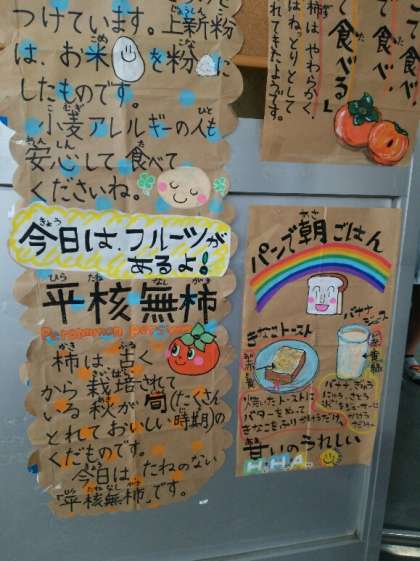 つけています。上新粉
は、お米を粉に
したものです。
小麦アレルギーの人も
安心して食べて
くださいね。
今日は、フルーツが
あるよ!
平核無柿
柿は古く
から栽培されて
いる秋が旬(たくさん
とれておいしい時期)の
くだものです。
今日は、たねのない
"平核無柿"です。
で食べ
て食べる」
柿は、やわらかく、
パンで朝ごはん
バナナ
きなこトースト
焼いたトーストに
バターをぬって
きなこをふりかけるだけ。
バナナ、ぎゅう
にゅう、さとう
甘いのうれしい
H.H.A.